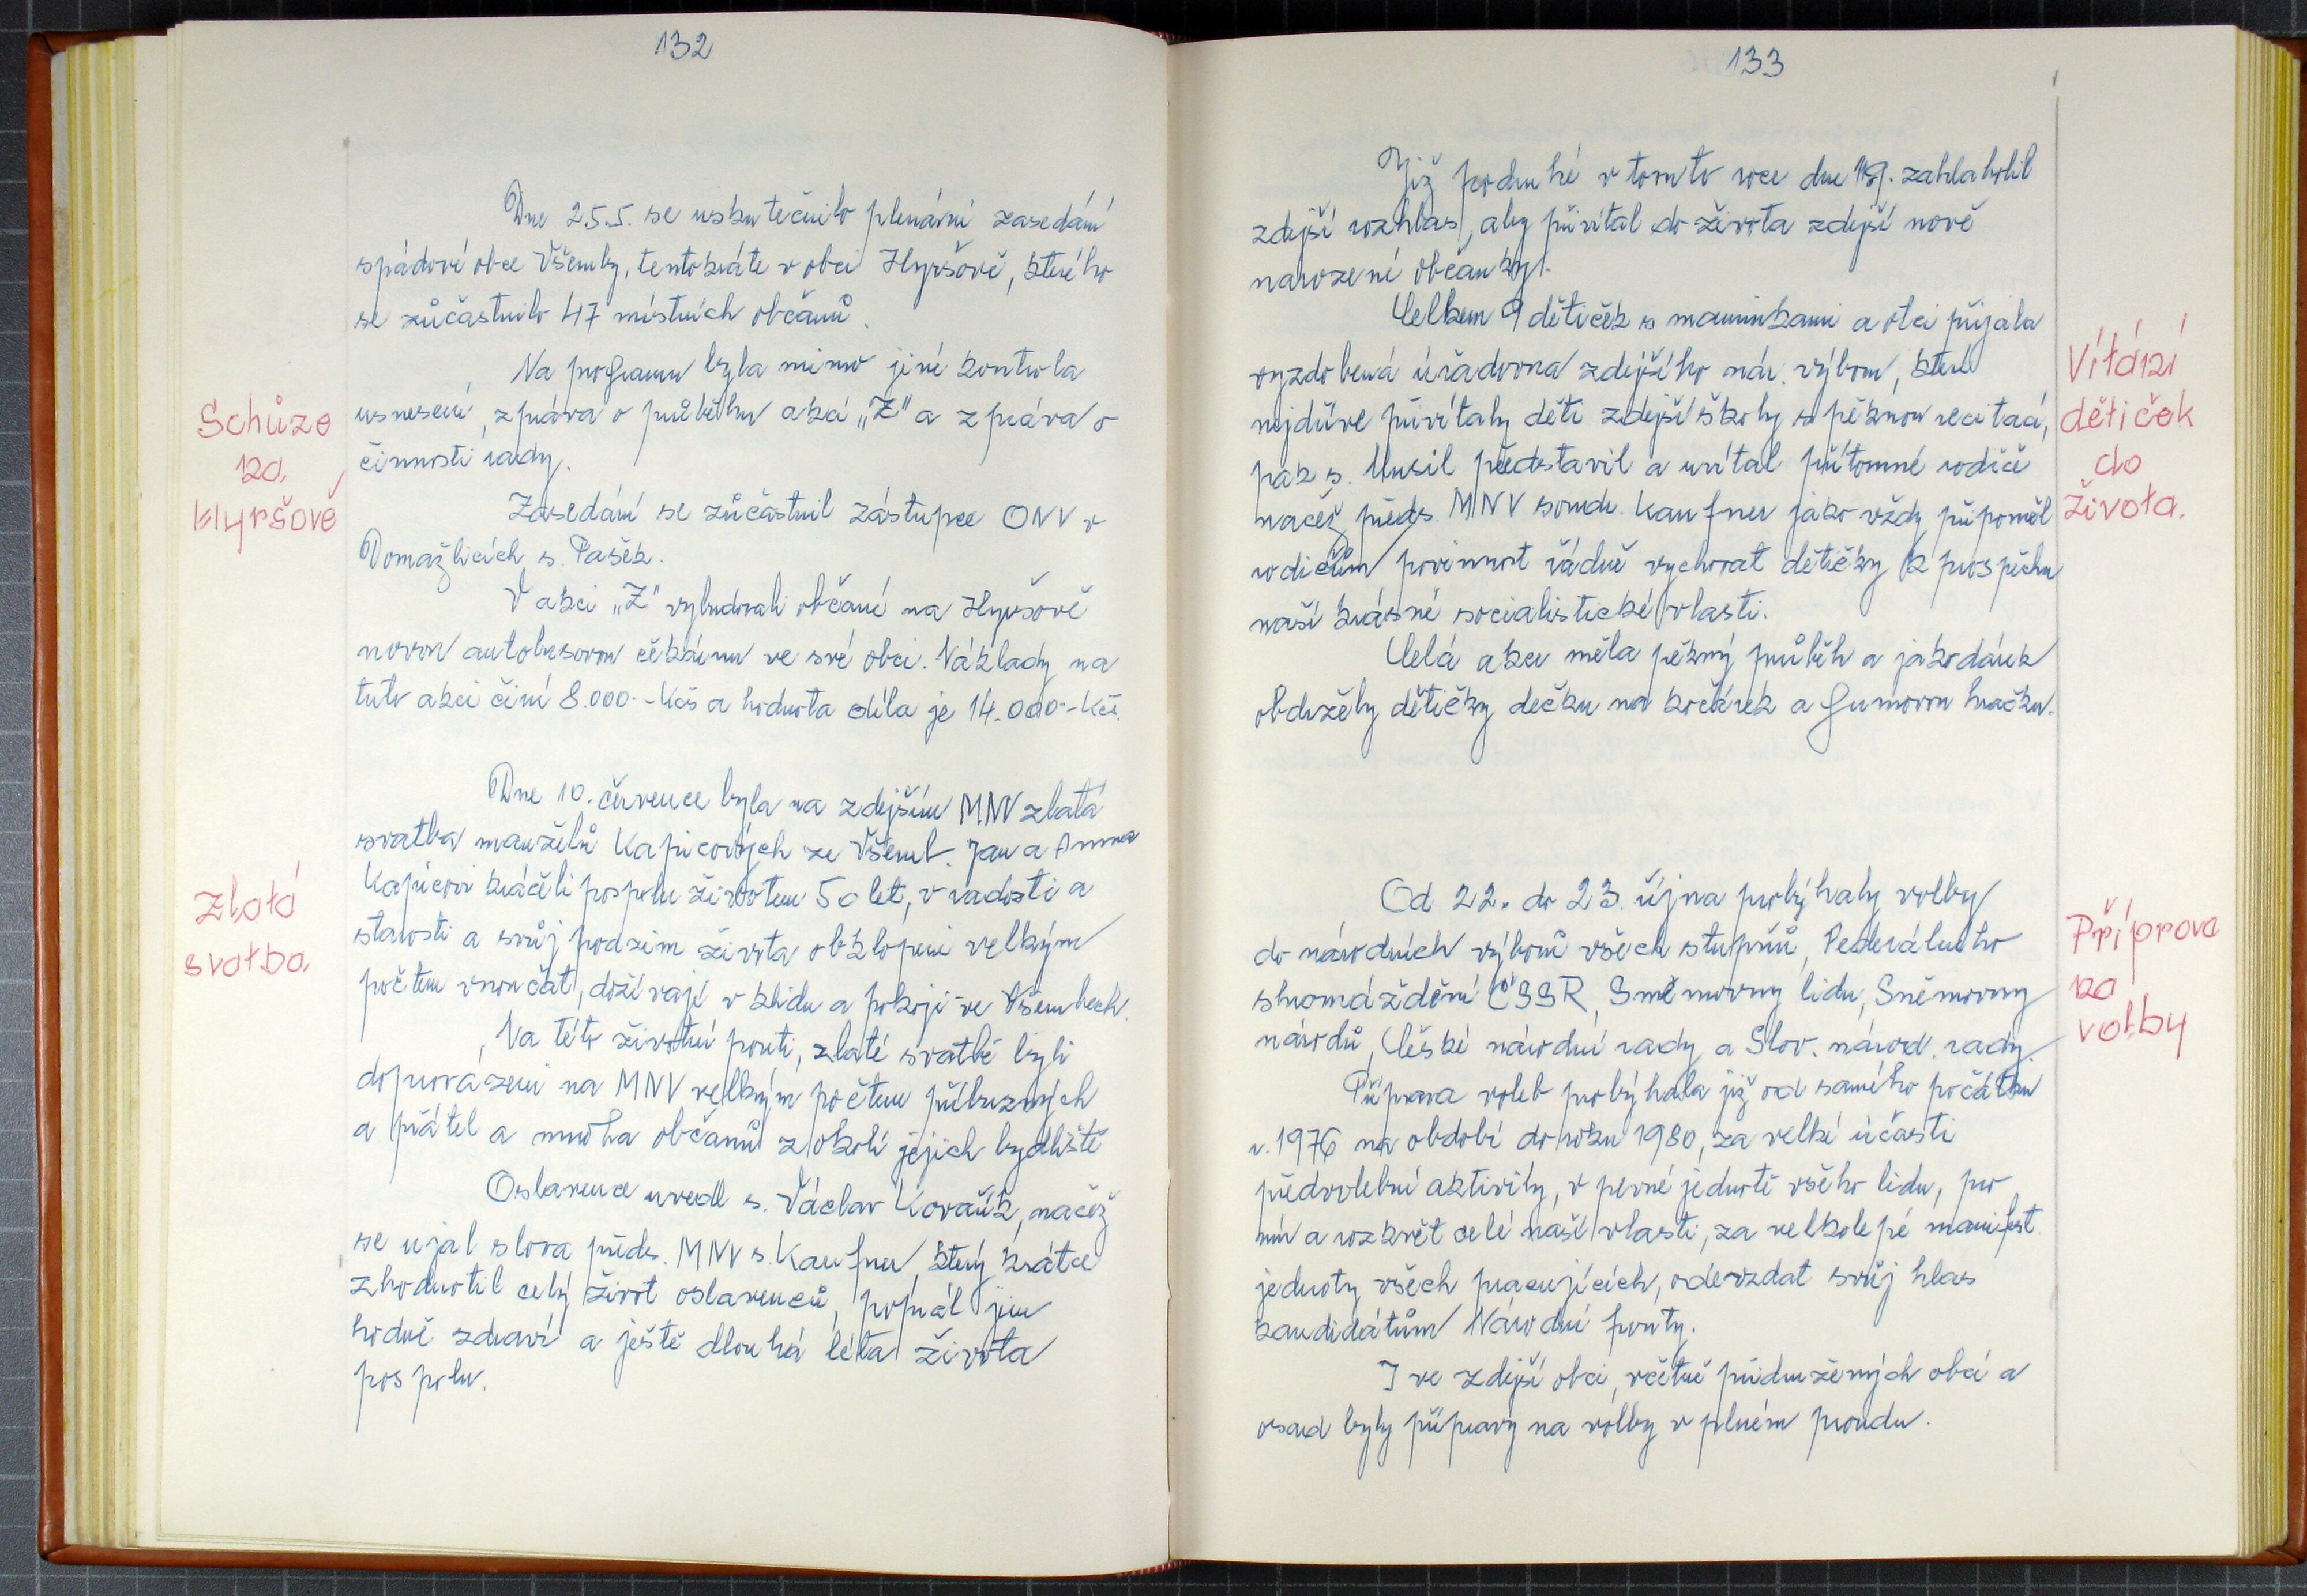 132
Dne 25.5. se uskutečnilo plenární zasedání
spádové obce Všeruby, tentokráte v obci Hyršově, kterého
se zůčastnilo 47 místních občanů.
Na programu byla mimo jiné kontrola
usnesení, zpráva o průběhu akcí „Z" a zpráva o
činnosti rady.
Schůze
na
Hyršově
Zasedání se zůčastnil zástupce ONV v
Domažlicích s. Pašek.
V akci „Z" vybudovali občané na Hyršově
novou autobusovou čekárnu ve své obci. Náklady na
tuto akci činí 8.000.-Kčs a hodnota díla je 14.000.-Kčs.
Dne 10. července byla na zdejším MNV zlatá
svatba manželů Kapicových ze Všerub. Jan a Anna
Kapicovi kráčeli pospolu životem 50 let, v radosti a
starosti a svůj podzim života obklopeni velkým
počtem vnoučat, dožívají v klidu a pokoji ve Všerubech.
Zlatá
svatba
Na této životní pouti, zlaté svatbě byli
doprovázeni na MNV velkým počtem příbuzných
a přátel a mnoha občanů z okolí jejich bydliště
Oslavence uvedl s. Václav Kovařík, načež
se ujal slova předs. MNV s. Kaufner, který krátce
zhodnotil celý život oslavenců, popřál jim
hodně zdraví a ještě dlouhá léta života
pospolu.
133
Již podruhé v tomto roce dne zahlaholil
zdejší rozhlas, aby přivítal do života zdejší nově
narozené občánky.
Celkem 9 dětiček s maminkami a otci přijala
vyzdobená úřadovna zdejšího nár. výboru, které
nejdříve přivítaly děti zdejší školy s pěknou recitací,
pak s. Musil představil a uvítal přítomné rodiče
načež předs. MNV soudr. Kaufner jako vždy připoměl
rodičům povinnost řádně vychovat dětičky k prospěchu
naší krásné socialistické vlasti.
Vítání
dětiček
do
života.
Celá akce měla pěkný průběh a jako dárek
obdržely dětičky dečku na kočárek a gumovou hračku.
Od 22. do 23. října probýhaly volby
do národních výborů všech stupňů, Federálního
shromáždění ČSSR, Sněmovny lidu, Sněmovny
národů, České národní rady a Slov. národ. rady.
Příprava
na
volby
Příprava voleb probýhala již od samého počátku
r. 1976 na období do roku 1980, za velké účasti
předvolební aktivity, v pevné jednotě všeho lidu, pro
mír a rozkvět celé naší vlasti, za velkolepé manifest.
jednoty všech pracujících, odevzdat svůj hlas
kandidátům Národní fronty.
I ve zdejší obci, včetně přidružených obcí a
osad byly přípravy na volby v plném proudu.